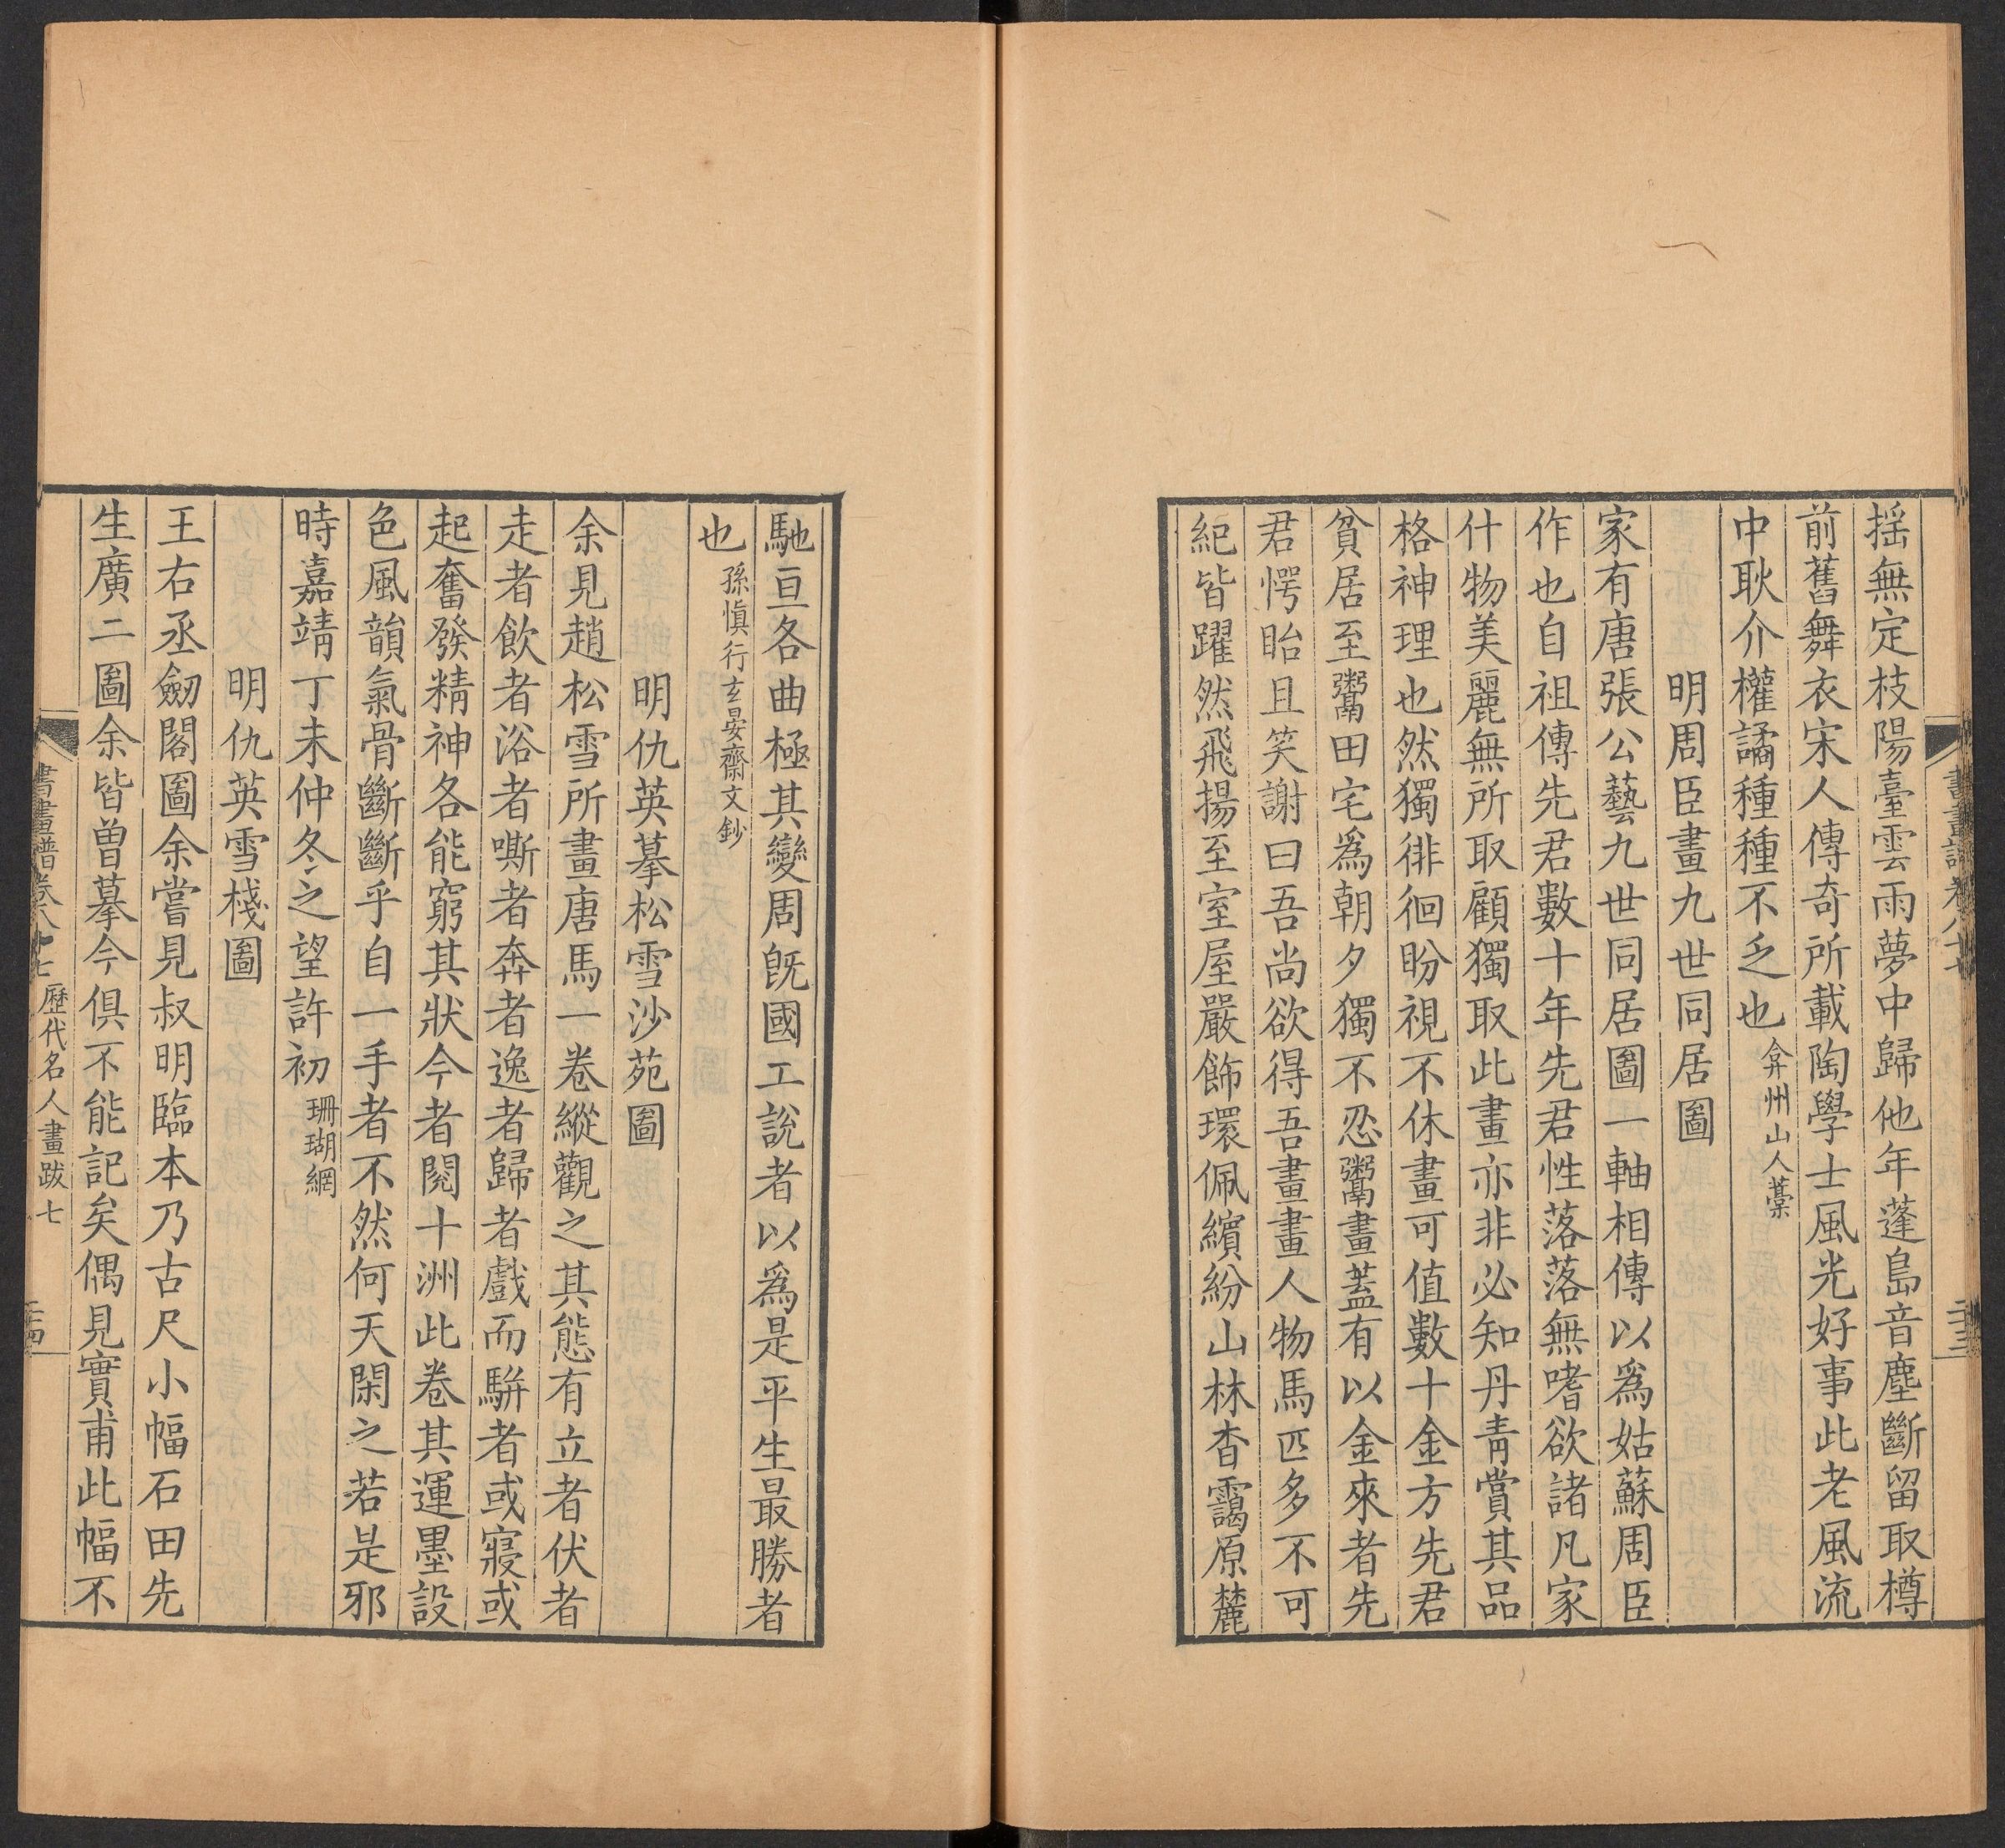 搖無定枝陽臺雲雨夢中歸他年蓬島音塵斷留取樽
前舊舞衣宋人傳奇所載陶學士風光好事此老風流
中耿介權譎種種不乏也弇州山人藁
明周臣畫九世同居圖
家有唐張公藝九世同居圖一軸相傳以爲姑蘇周臣
作也自祖傳先君數十年先君性落落無嗜欲諸凡家
什物美麗無所取顧獨取此畫亦非必知丹靑賞其品
格神理也然獨徘徊盼視不休畫可值數十金方先君
貧居至鬻田宅爲朝夕獨不忍鬻畫蓋有以金來者先
君愕眙且笑謝曰吾尚欲得吾畫畫人物馬匹多不可
紀皆躍然飛揚至室屋嚴飾環佩繽紛山林杳靄原麓
書畫譜卷八十七
二十三
馳亘各曲極其變周旣國工說者以爲是平生最勝者
也孫慎行玄晏齋文鈔
明仇英摹松雪沙苑圖
余見趙松雪所畫唐馬一卷縱觀之其態有立者伏者
走者飲者浴者嘶者奔者逸者歸者戲而駢者或寢或
起奮發精神各能窮其狀今者閱十洲此卷其運墨設
色風韻氣骨斷斷乎自一手者不然何天閑之若是邪
時嘉靖丁未仲冬之望許初珊瑚網
明仇英雪棧圖
王右丞劒閣圖余嘗見叔明臨本乃古尺小幅石田先
生廣二圖余皆曾摹今俱不能記矣偶見實甫此幅不
書畫譜卷八十七 歷代名人畫跋七
二十四